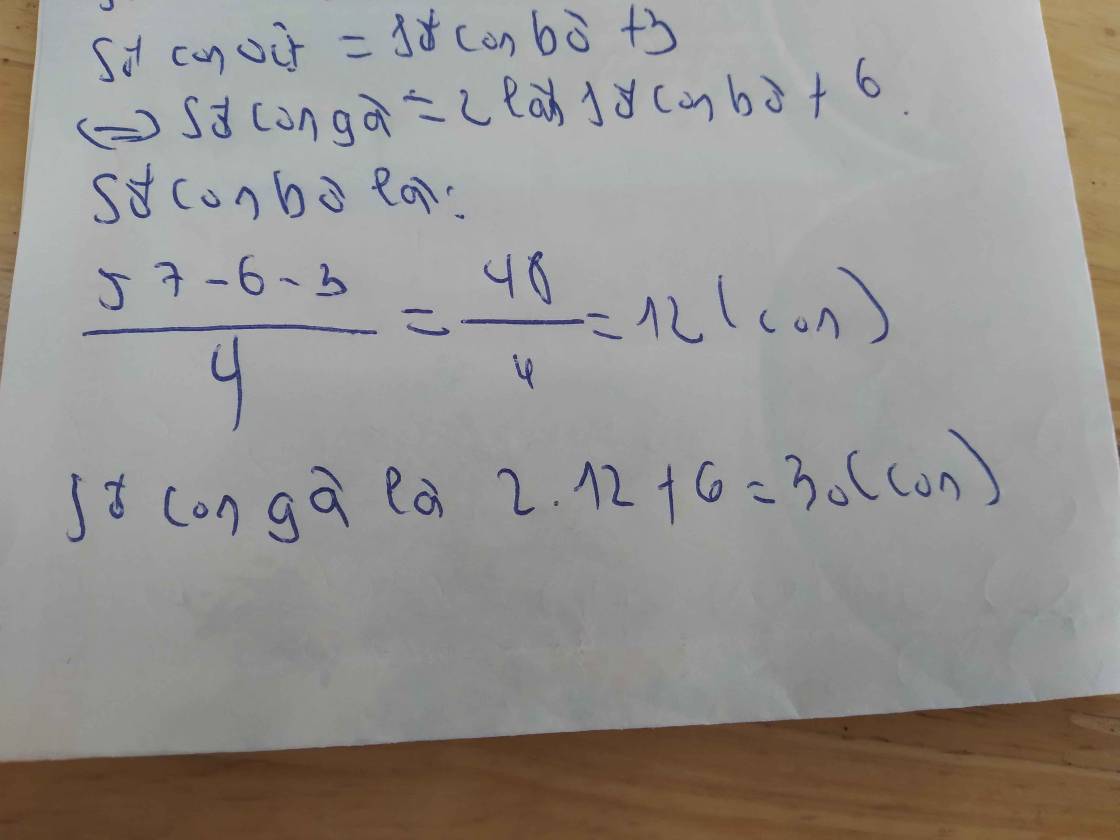 số con vịt = số con bò + 3
<=> số con gà = 2 lần số con bò + 6.
số con bò là:
57-6-3/4 = 48/4 = 12 (con)
số con gà là 2.12+6=30(con)